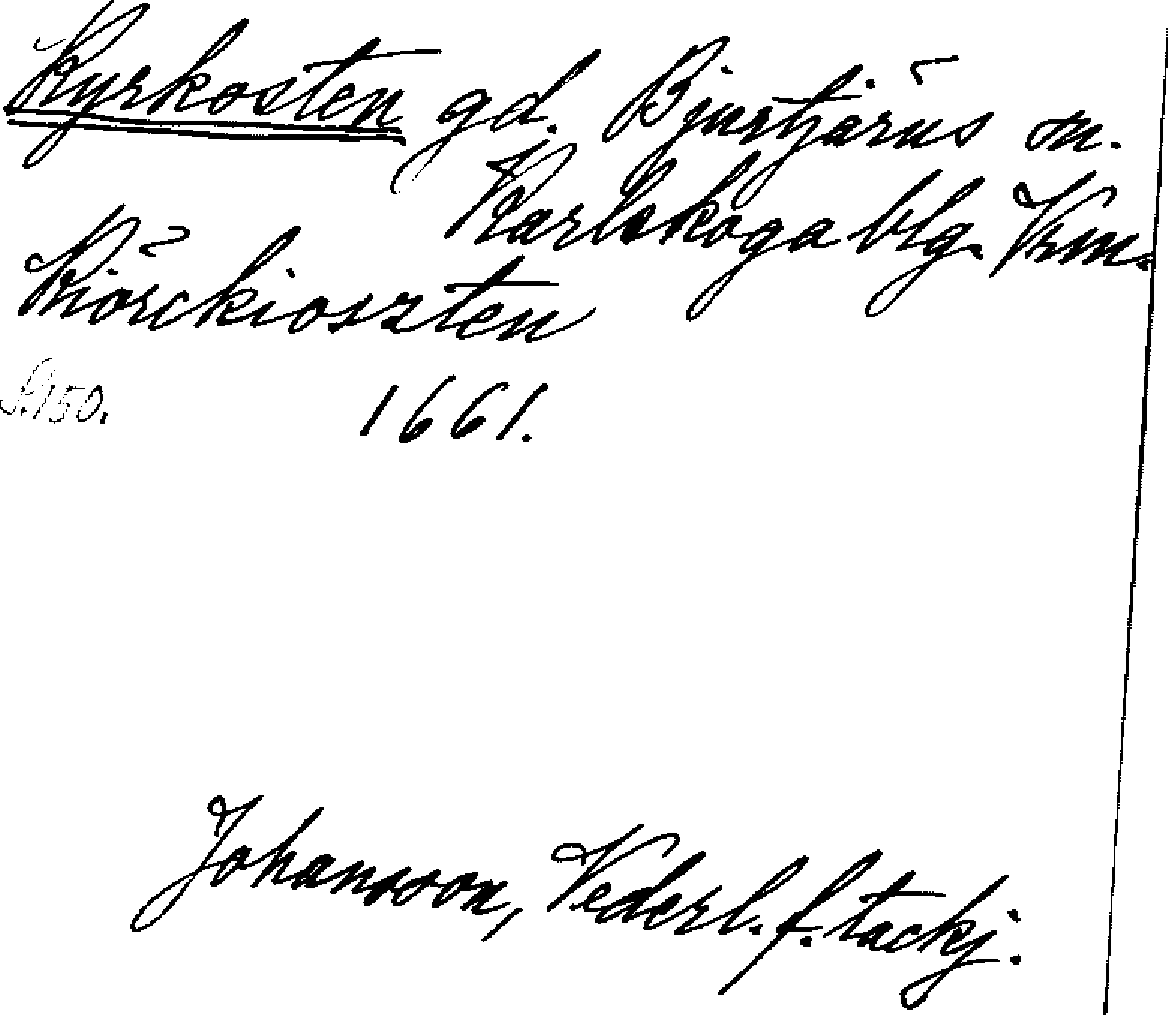 Kyrkosten gd. Bjurtjärns sn.
Karlskoga blg. Vrm.
Kiörckioszten
S. 150. 1661.
Johansson, Vederl. f. tackj.